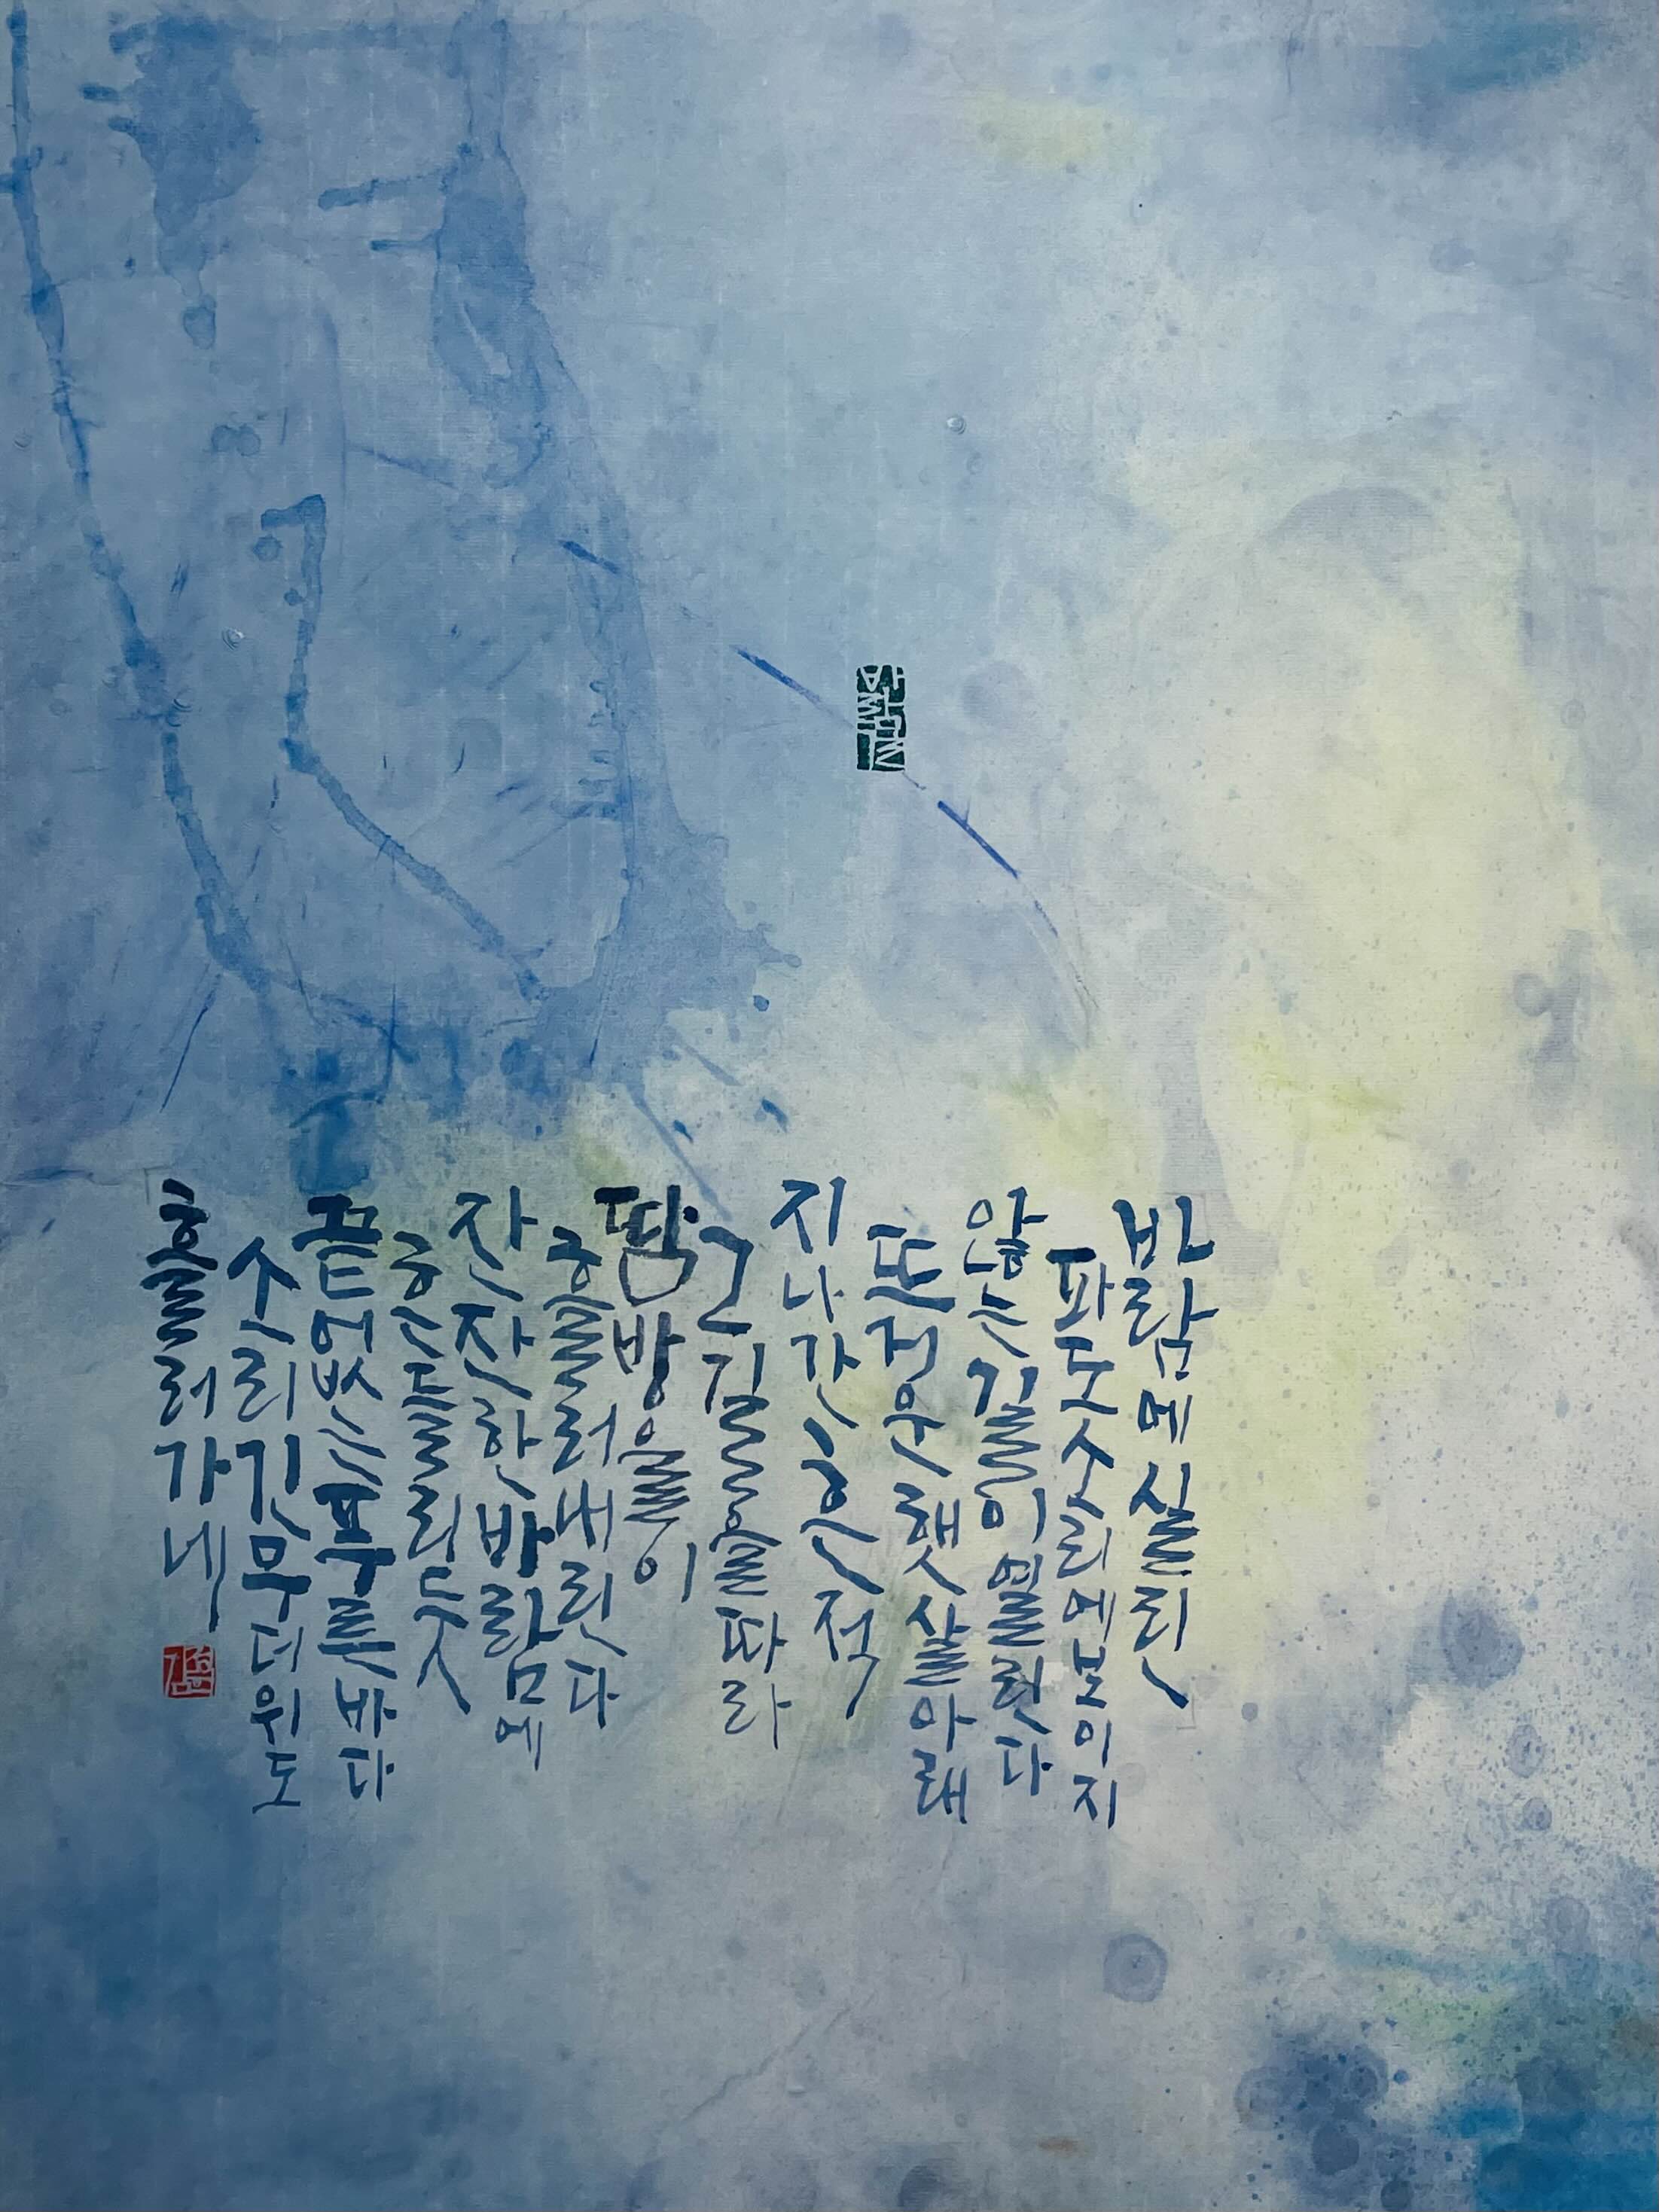 바람에 실린
파도소리에 보이지
않는 길이 열린다
뜨거운 햇살 아래
지나간 흔적
그 길을 따라
땀방울이
흘러내린다
잔잔한 바람에
흔들리듯
끝없는 푸른 바다
소리긴 무더위도
흘러가네